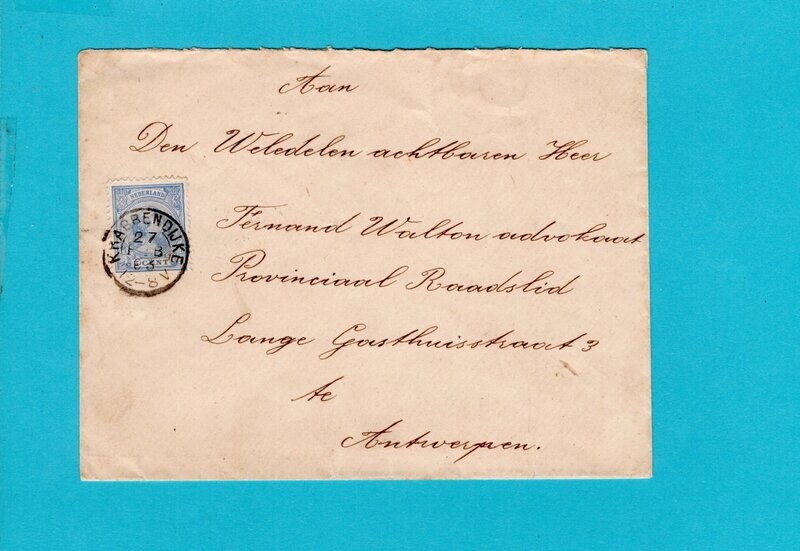 Aan
Den Weledelen achtbaren Heer
Fernand Walton advokaat
Provinciaal Raadslid
Lange Gasthuisstraat 3
te
Antwerpen.
NEDERLAND
KRABBENDIJKE
27
CENT